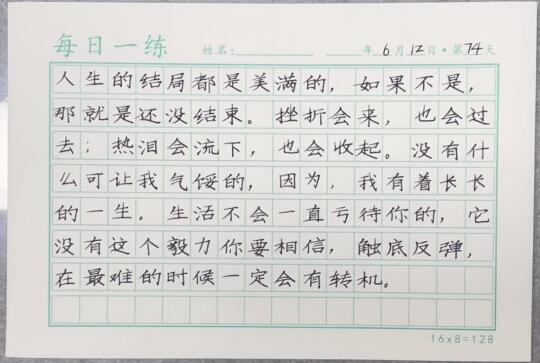 每日一练 姓名: 年6月12日·第74天
人生的结局都是美满的，如果不是，
那就是还没结束。挫折会来，也会过
去；热泪会流下，也会收起。没有什
么可让我气馁的，因为，我有着长长
的一生。生活不会一直亏待你的，它
没有这个毅力你要相信，触底反弹，
在最难的时候一定会有转机。
16x8=128